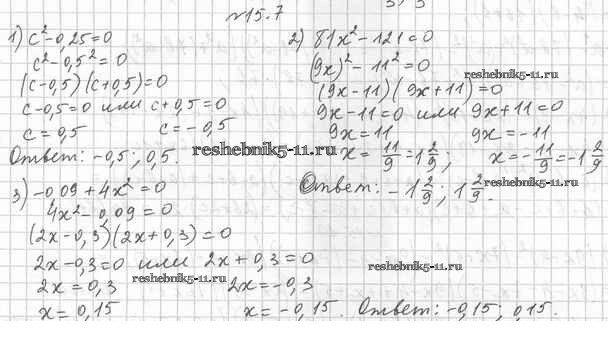 №15.7
1) c²-0,25=0
c²-0,5²=0
(c-0,5)(c+0,5)=0
c-0,5=0 или c+0,5=0
c=0,5 c=-0,5
Ответ: -0,5; 0,5.
2) 81x²-121=0
(9x)²-11²=0
reshebnik5-11.ru
(9x-11)(9x+11)=0
9x-11=0 или 9x+11=0
9x=11 9x=-11
reshebnik5-11.ru
x=11/9=1 2/9; x=-11/9=-1 2/9
Ответ: -1 2/9; 1 2/9.
reshebnik5-11.ru
3) -0,09+4x²=0
4x²-0,09=0
(2x-0,3)(2x+0,3)=0
2x-0,3=0 или 2x+0,3=0
reshebnik5-11.ru
2x=0,3 2x=-0,3
reshebnik5-11.ru
x=0,15 x=-0,15. Ответ: -0,15; 0,15.